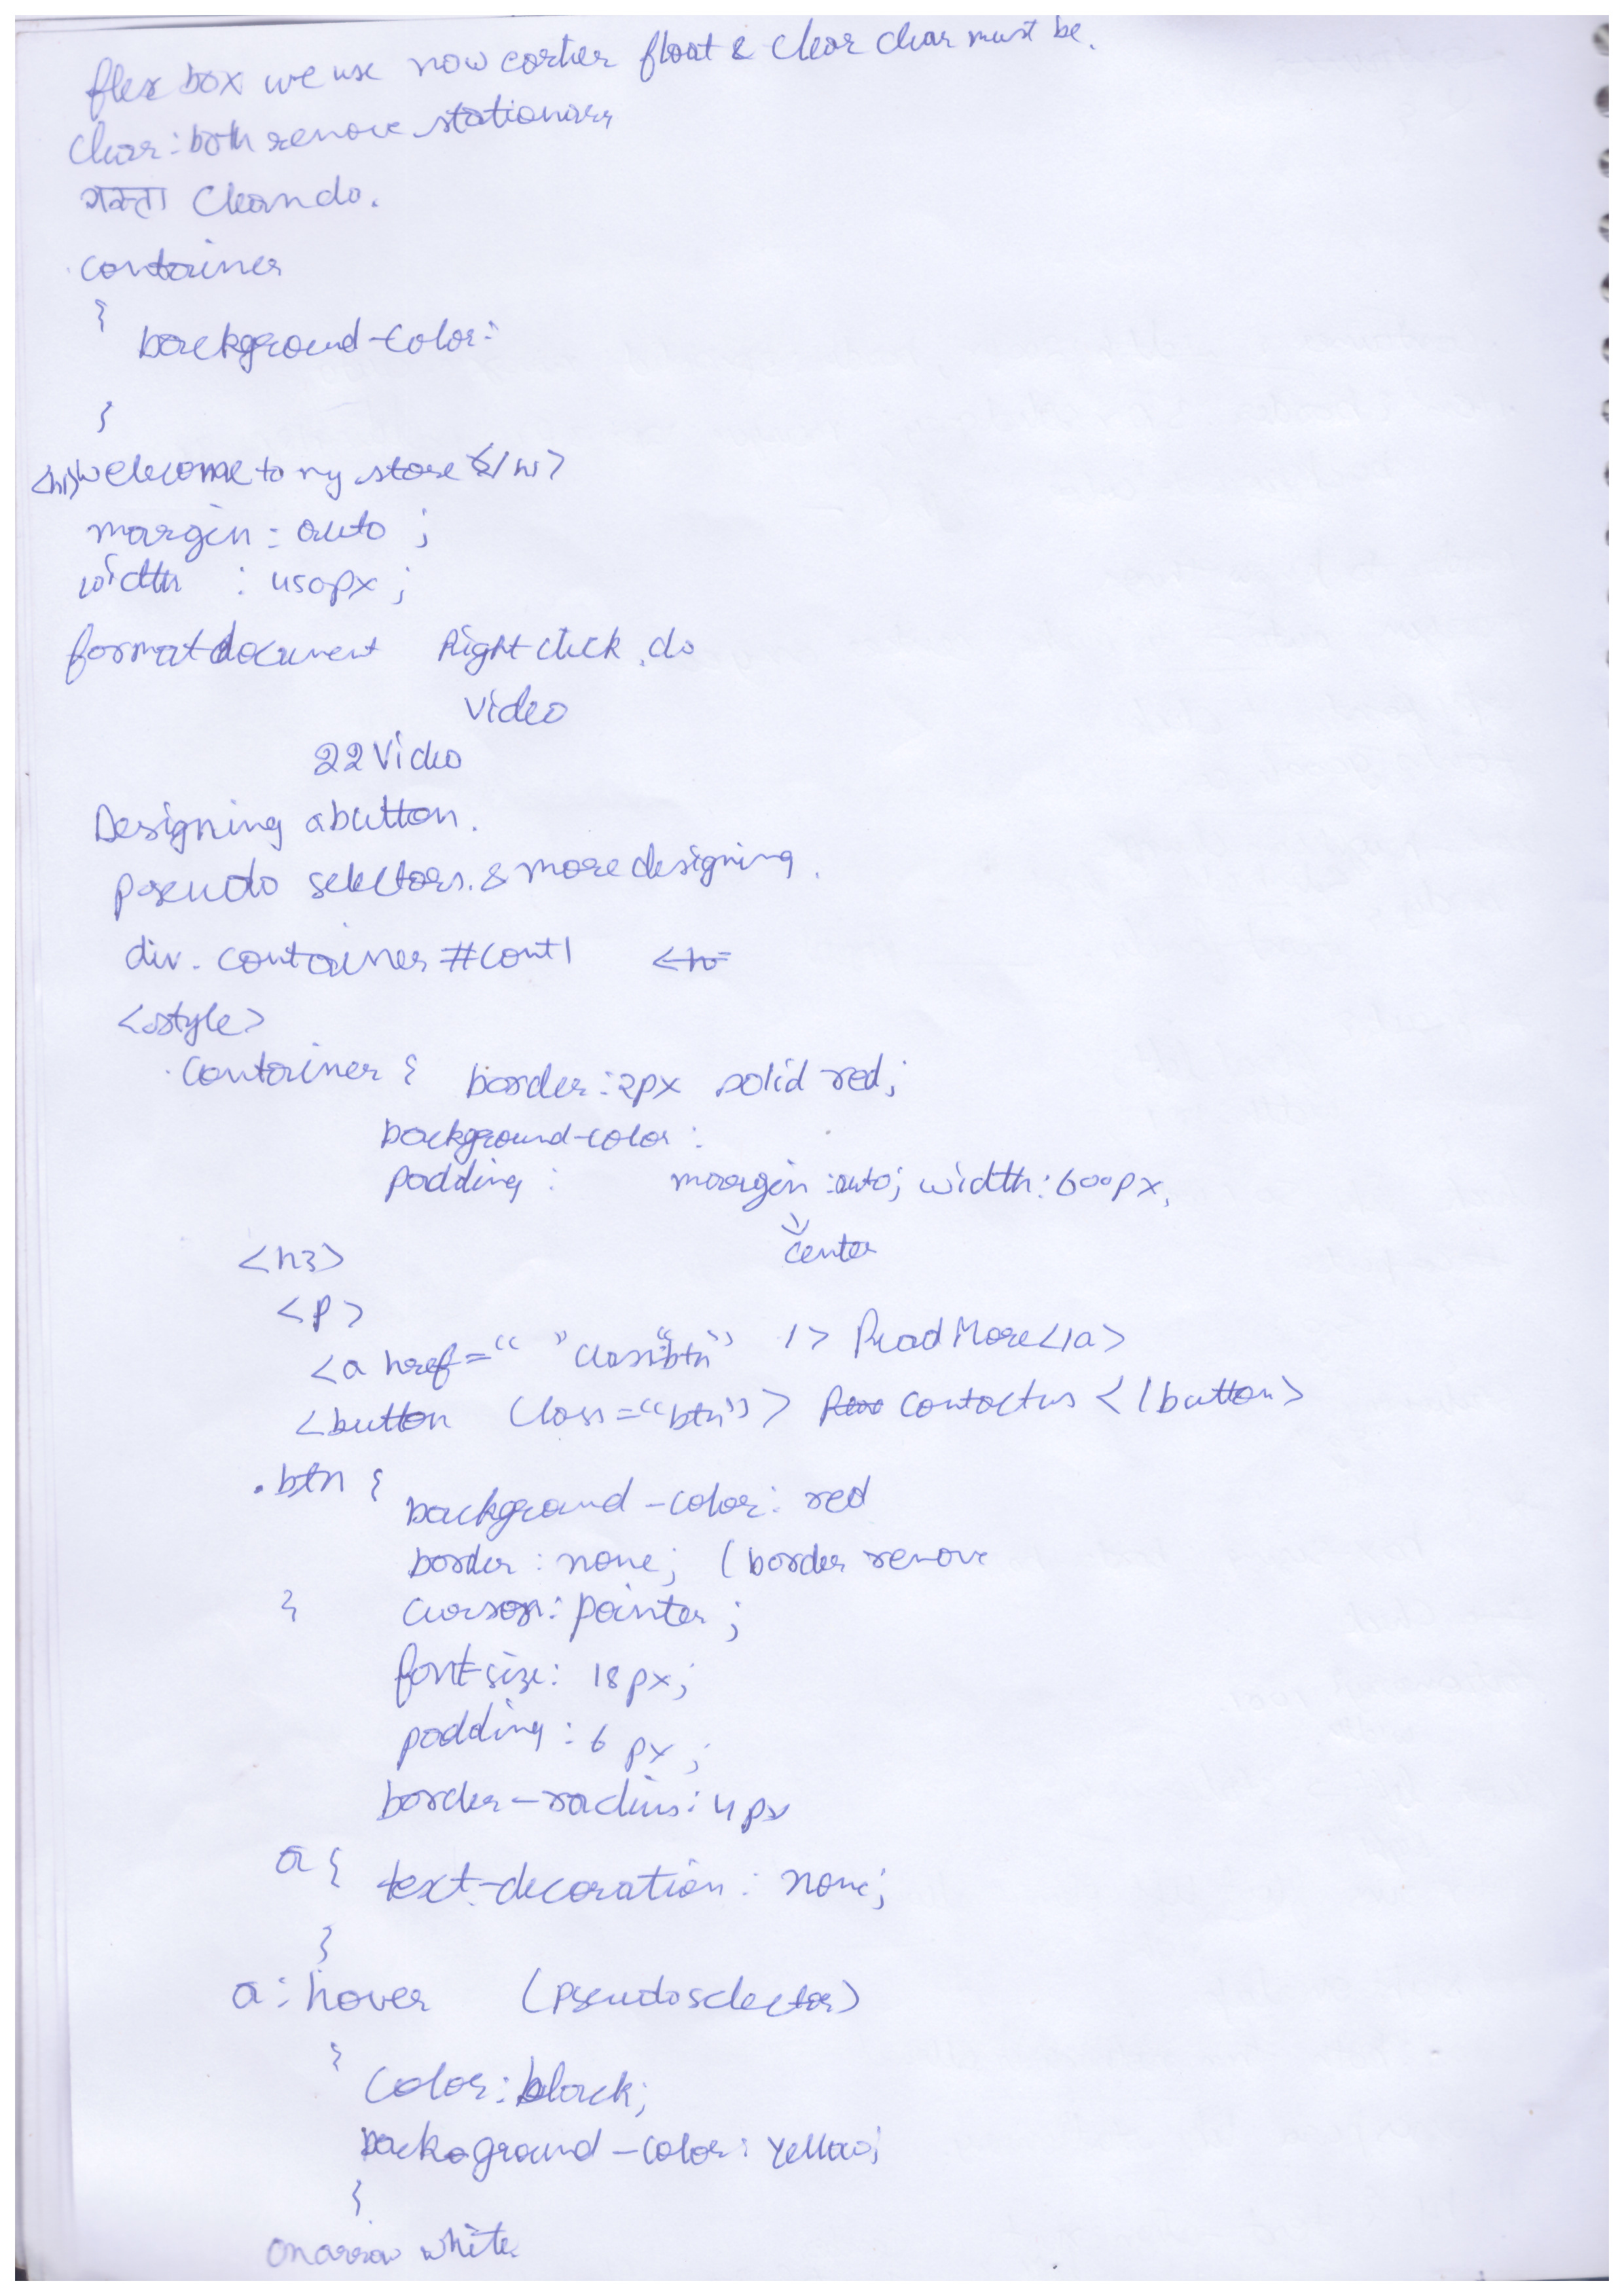 flex box we use now earlier float & clear clear must be.
Clear: both remove stationary
रास्ता Clean do.
.container
{
background-color:
}
<h1>Welcome to my store </h1>
margin: auto ;
width : 450px ;
format document Right click do
Video
22 Video
Designing a button.
pseudo selectors. & more designing.
div.container #cont1
<style>
.container { border: 2px solid red;
background-color:
padding : margin: auto; width: 600px,
center
<h3>
<p>
<a href=" " class="btn" /> Read More</a>
<button Class="btn"> Contact us </button>
.btn {
background-color: red
border: none; (border remove
} cursor: pointer ;
font size: 18px;
padding: 6 px ;
border-radius: 4px
a { text-decoration: none;
}
a: hover (pseudo selector)
{
Color: black;
background-color: Yellow;
}
on arrow white